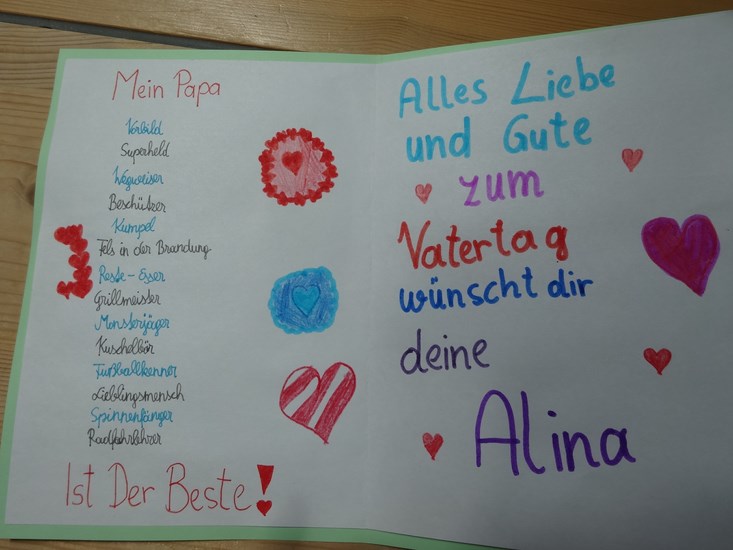 Mein Papa
Vorbild
Superheld
Wegweiser
Beschützer
Kumpel
Fels in der Brandung
Reste-Esser
Grillmeister
Monsterjäger
Kuschelbär
Fußballkenner
Lieblingsmensch
Spinnenfänger
Radfahrlehrer
Ist Der Beste!
Alles Liebe
und Gute
zum
Vatertag
wünscht dir
deine
Alina